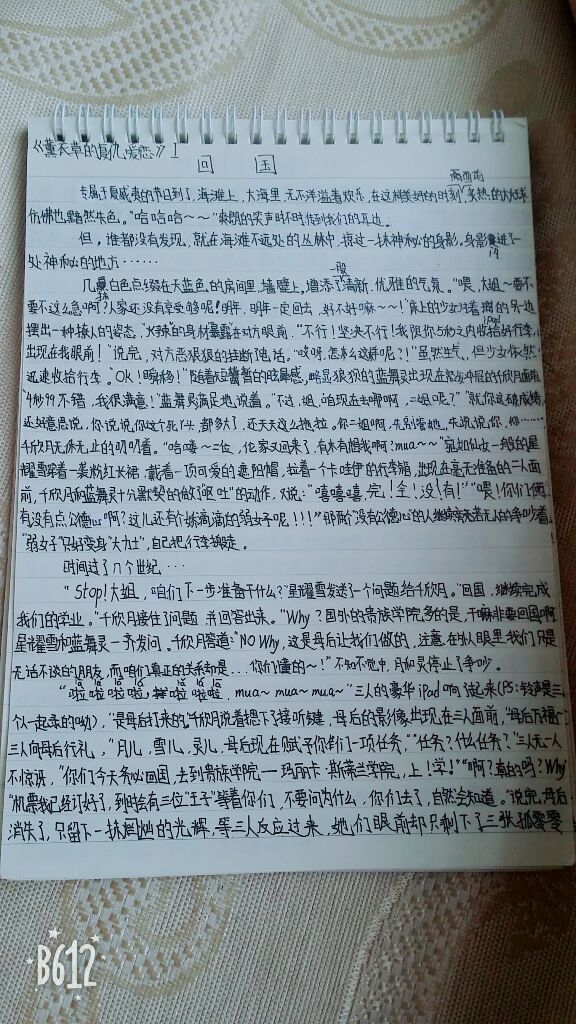 《薰衣草的复仇爱恋》1
回 国
专属于夏威夷的节日到了,海滩上,大海里,无不洋溢着欢乐,在这样美好的时刻,炙热的大火球
仿佛也黯然失色。"哈哈哈~~"爽朗的笑声时不时传到我们的耳边。
但,谁都没有发现,就在海滩不远处的丛林中,掠过一抹神秘的身影。身影进了一
处神秘的地方······
几抹白色点缀在天蓝色的房间里,墙壁上,增添了一股清新、优雅的气氛。"喂,大姐,要不
要不这么急啊?人家还没有享受够呢!明年,明年一定回去,好不好嘛~~!"床上的少女对着的另一边
摆出一种撩人的姿态。"火辣"的身材暴露在对方眼前,"不行!坚决不行!我限你5秒之内收拾好行李,
出现在我眼前!"说完,对方恶狠狠的挂断了电话。"哎呀,怎么这样呢?!"虽然生气,但少女依然
迅速收拾行李。"OK!瞬移!"随着短暂的眩晕感,略显狼狈的蓝舞灵出现在千欣月面前
"4秒99不错,我很满意!"蓝舞灵满足地说着。"不过,姐,咱现在去哪啊,二姐呢?""就你这破成绩
还好意思说,你说说你这个死丫头都多大了,还天天这么拖拉。你二姐啊,先别管她,先说说你,你······"
千欣月无休无止的叨叨着。"哈喽~二位,伦家又回来了,有木有想我啊?mua~~"宛如仙女一般的星
耀雪穿着一袭粉红长裙,戴着一顶可爱的遮阳帽,拉着一个卡哇伊的行李箱,出现在毫无准备的二人面
前,千欣月和蓝舞灵十分默契的做了"呕吐"的动作,又说:"嘻嘻嘻,完!全!没!有!""喂!你们俩
有没有点公德心啊?这儿还有个娇滴滴的弱女子呢!!!"那两个"没有公德心"的人继续旁若无人的争吵着
"弱女子"只好变身"大力士",自己把行李搬走。
时间过了几个世纪···
"Stop!大姐,咱们下一步准备干什么?"星耀雪发送了一个问题给千欣月。"回国,继续完成
我们的学业。"千欣月接住了问题,并回答出来。"Why?国外的贵族学院多的是,干嘛非要回国啊
星耀雪和蓝舞灵一齐发问。千欣月答道:"NO Why,这是母后让我们做的,注意,在外人眼里我们只是
无话不谈的朋友,而咱们真正的关系却是...你们懂的~!"不知不觉中,月和灵停止了争吵。
"啦啦啦啦,啦啦啦,mua~mua~mua~"三人的豪华iPad响了起来(PS:铃声是三
个人一起录的呦),"是母后打来的。"千欣月说着摁下了接听键,母后的影像出现在三人面前,"母后万福"
三人向母后行礼,"月儿,雪儿,灵儿,母后现在赋予你们一项任务,""任务?什么任务?"三人无一人
不惊讶,"你们今天务必回国,去到贵族学院——玛丽卡·斯蒂兰学院,上!学!""啊?真的吗?Why
"机票我已经订好了,到时会有三位"王子"等着你们,不要问为什么,你们去了,自然会知道。"说完,母后
消失了,只留下一抹的光辉,等三人反应过来,她们眼前却只剩下了三张孤零零
B612